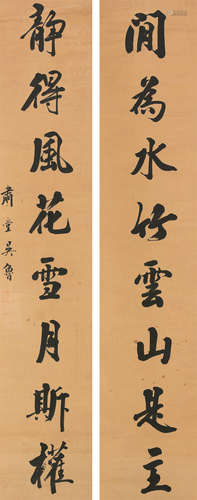 閒為水竹雲山是主
靜得風花雪月斯權
肅堂吳魯